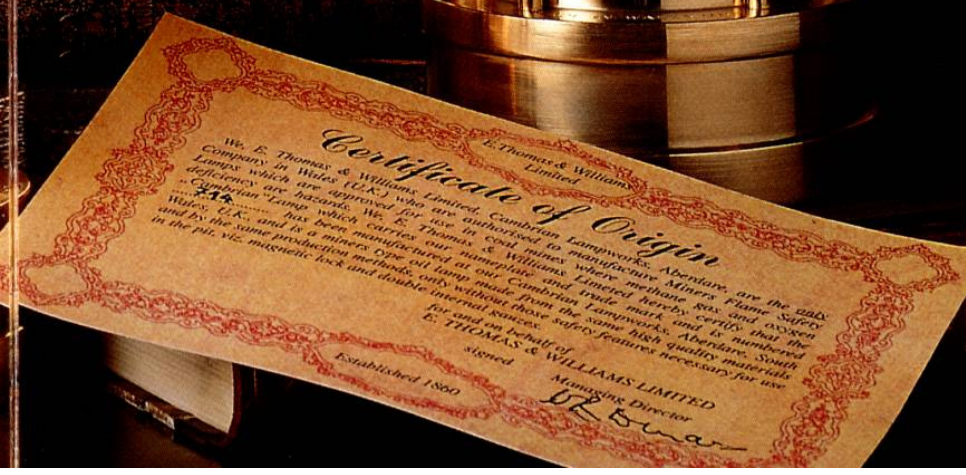 E. Thomas & Williams
Limited
Certificate of Origin
We, E. Thomas & Williams, Limited, Cambrian Lampworks, Aberdare, are the only
Company in Wales (U.K.) who are authorised to manufacture Miners Flame Safety
Lamps which are approved for use in coal mines where methane gas and oxygen
deficiency are hazards. We, E. Thomas & Williams Limited hereby certify that the
"Cambrian" Lamp which carries our nameplate and trade mark and is numbered
has been manufactured at our Cambrian Lampworks, Aberdare, South
Wales, U.K., and is a miners type oil lamp, made from the same high quality materials
and by the same production methods, only without those safety features necessary for use
in the pit, viz. magnetic lock and double internal gauzes.
for and on behalf of
E. THOMAS & WILLIAMS LIMITED
signed
Managing Director
Established 1860